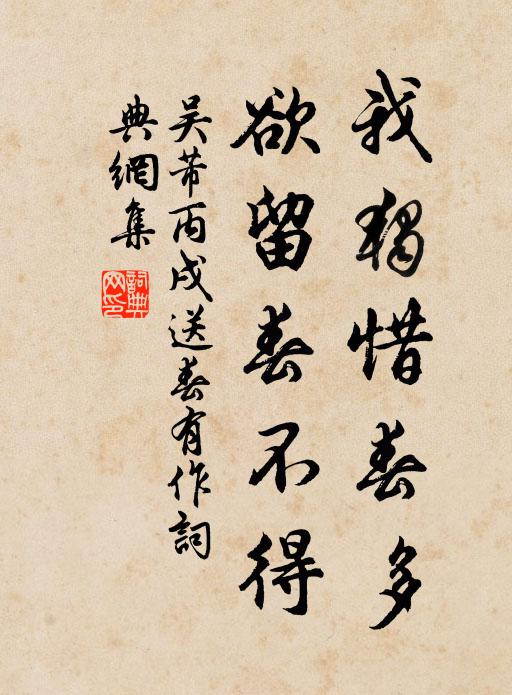 我獨惜春多
欲留春不得
吴芾丙戌送春有作詞
典網集
詞典
网印